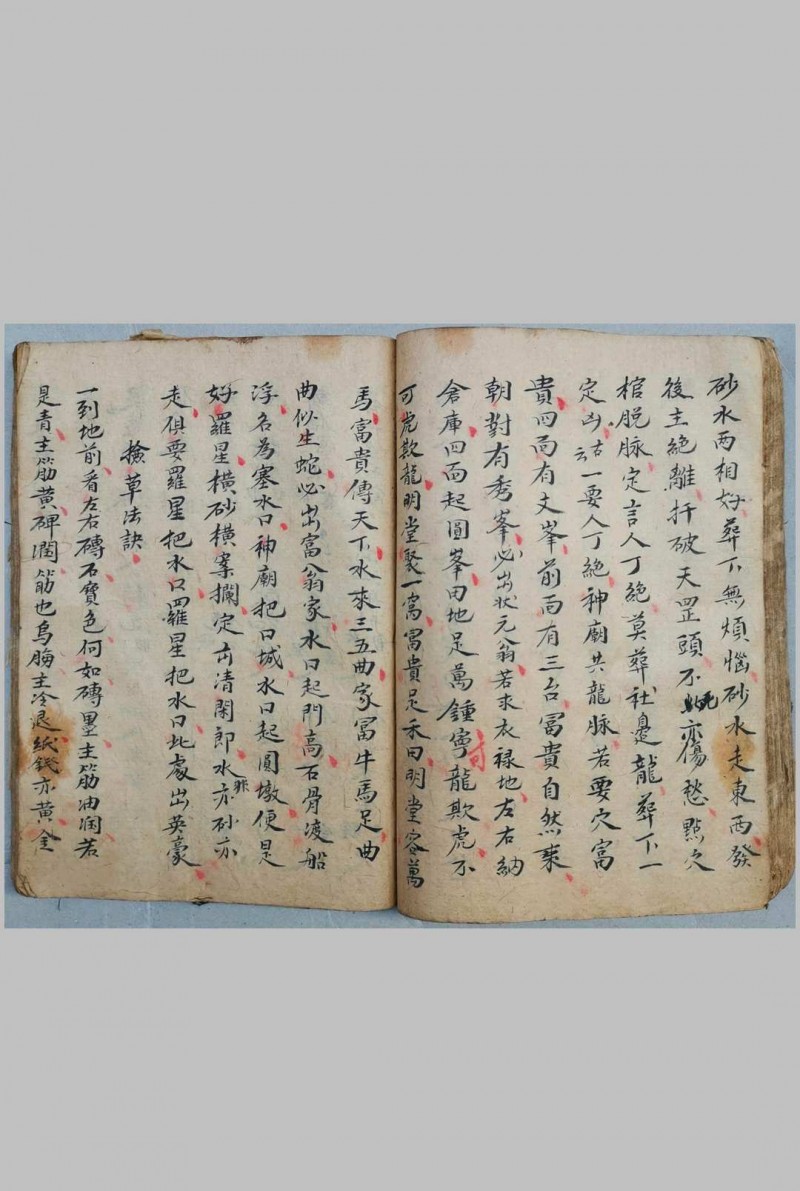 砂水两相好葬下無煩惱砂水走東西發
後主絕離扞破天罡頭不死亦傷愁點穴
棺脫脉定言人丁絕莫葬社邊龍葬下一
定凶古云一要人丁絕神廟共龍脉若要穴富
貴四面有文峯前面有三台冨貴自然来
朝對有秀峯必出狀元翁若求衣禄地左右納
倉庫四面起圓峯田地足萬鍾寧可龍欺虎不
可虎欺龍明堂聚一窩冨貴足禾田明堂容萬
馬富貴傳天下水來三五曲家冨牛馬足曲
曲似生蛇必出富翁家水口起門高石骨渡船
浮名為塞水口神廟把口城水口起圓墩便是
好羅星橫砂橫案攔定出清閑郎水非亦砂亦
走俱要羅星把水口羅星把水口此處出英豪
撿草法訣
一到地前看左右磚石寶色何如磚墨主筋油润若
是青主筋黄碑潤筋也烏腦主冷退紙錢亦黄金